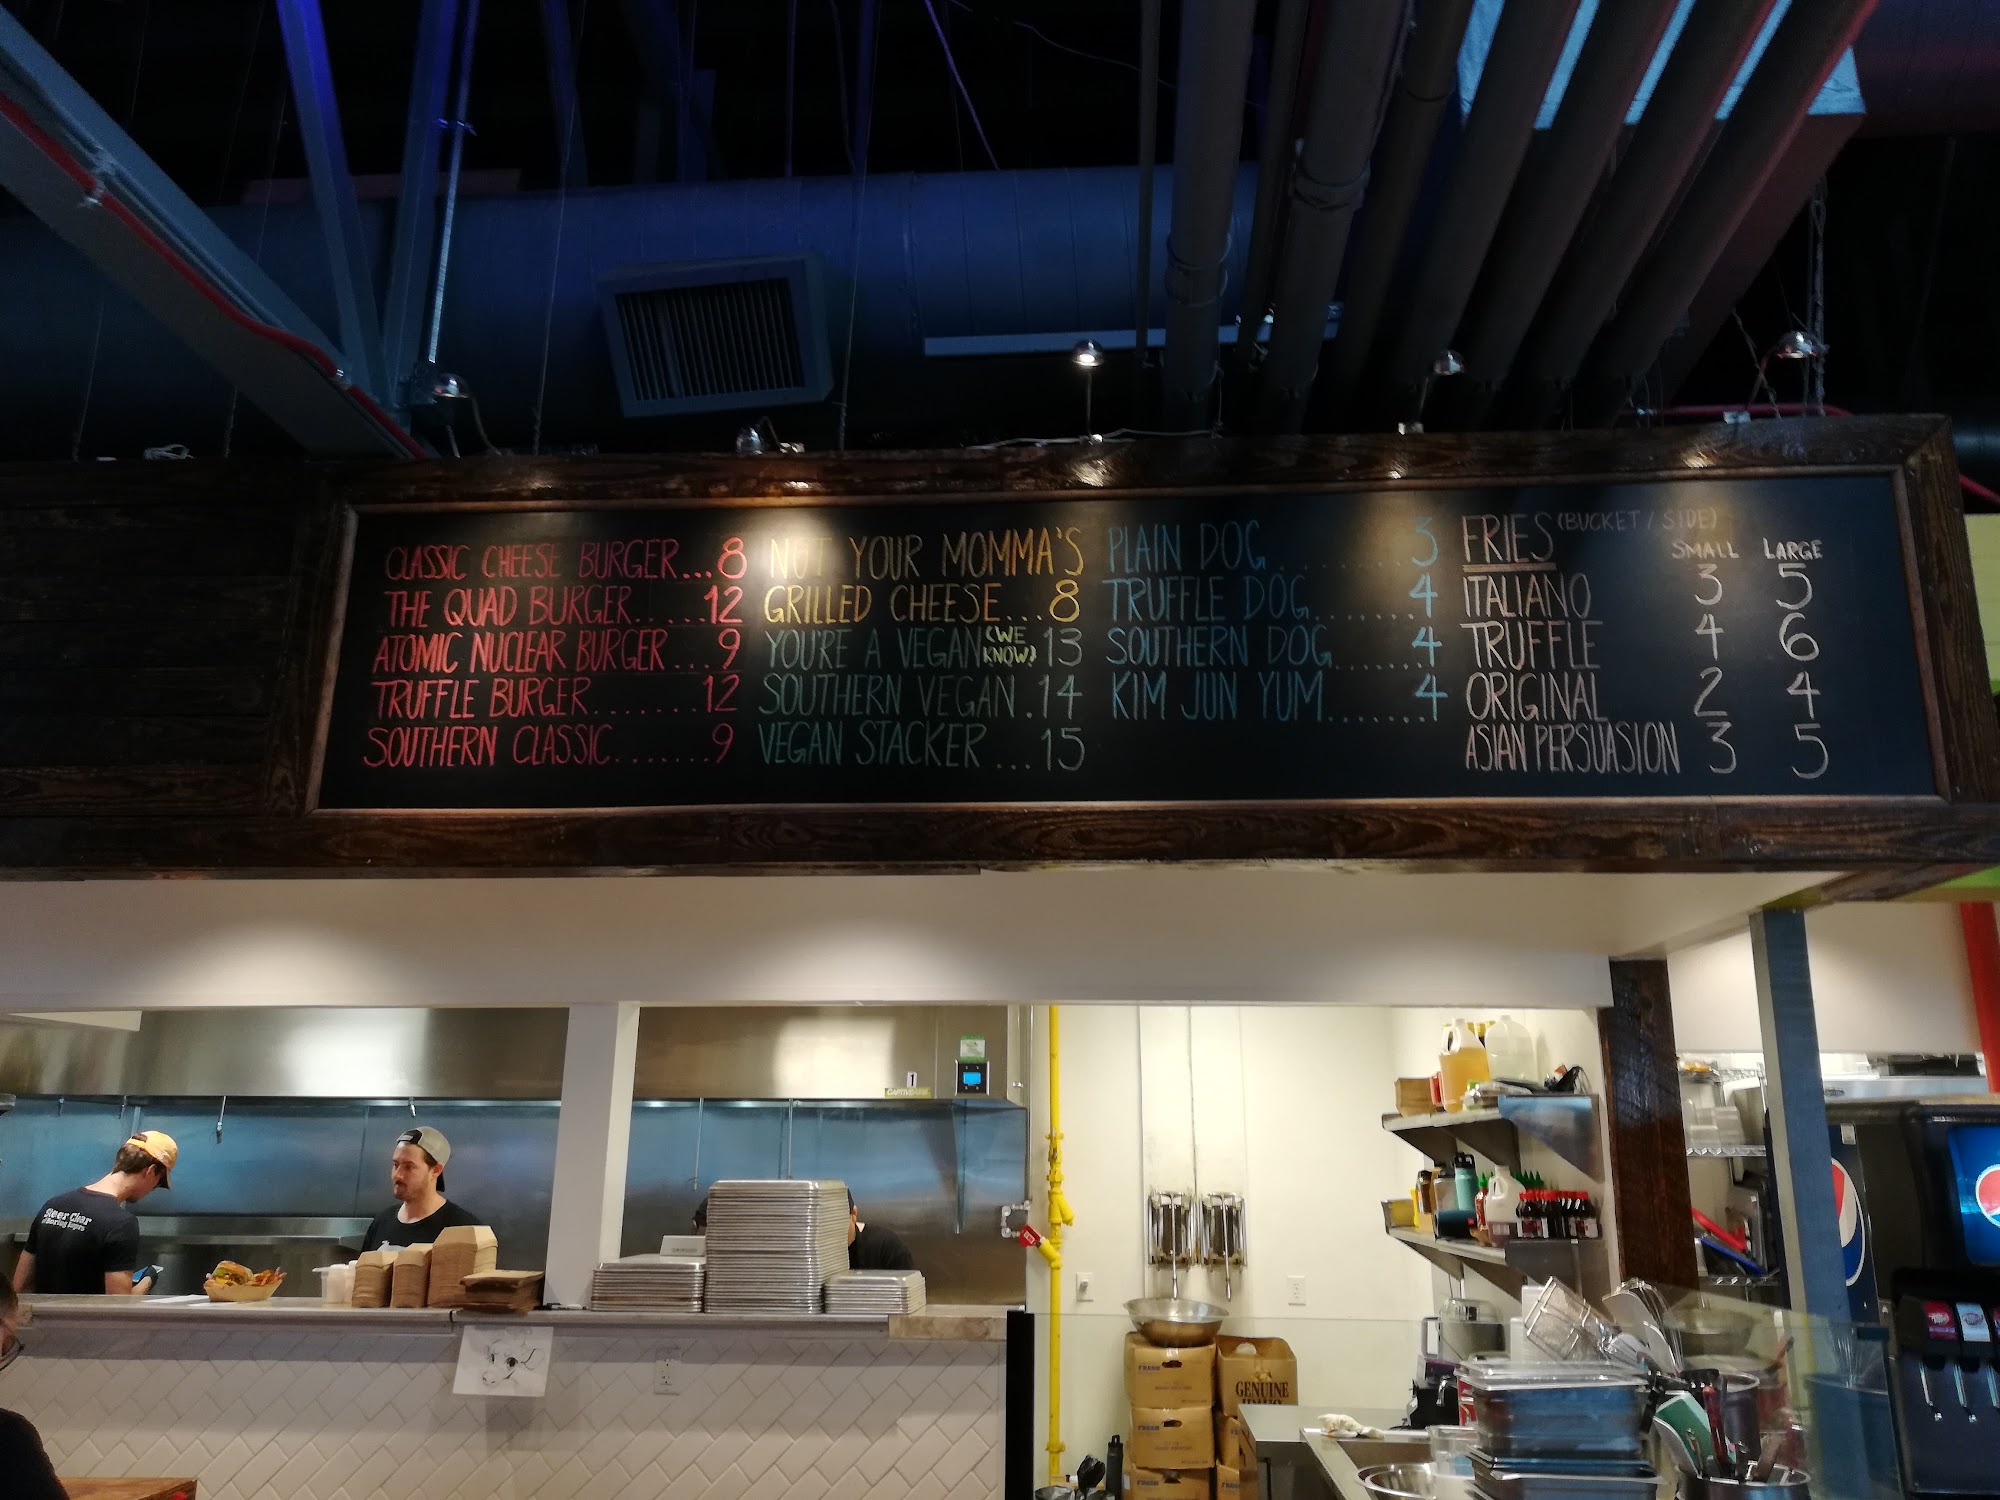 CLASSIC CHEESE BURGER...8
THE QUAD BURGER......12
ATOMIC NUCLEAR BURGER...9
TRUFFLE BURGER.......12
SOUTHERN CLASSIC.......9
NOT YOUR MOMMA'S
GRILLED CHEESE...8
YOU'RE A VEGAN (WE KNOW) 13
SOUTHERN VEGAN.14
VEGAN STACKER...15
PLAIN DOG.........3
TRUFFLE DOG.......4
SOUTHERN DOG.......4
KIM JUN YUM.......4
FRIES (BUCKET / SIDE)
SMALL LARGE
ITALIANO 3 5
TRUFFLE 4 6
ORIGINAL 2 4
ASIAN PERSUASION 3 5
1
CAPTIVEAIRE
Steer Clear
of Boring Burgers
FRESH
FRESH
FRESH
GENUINE
IDAHO